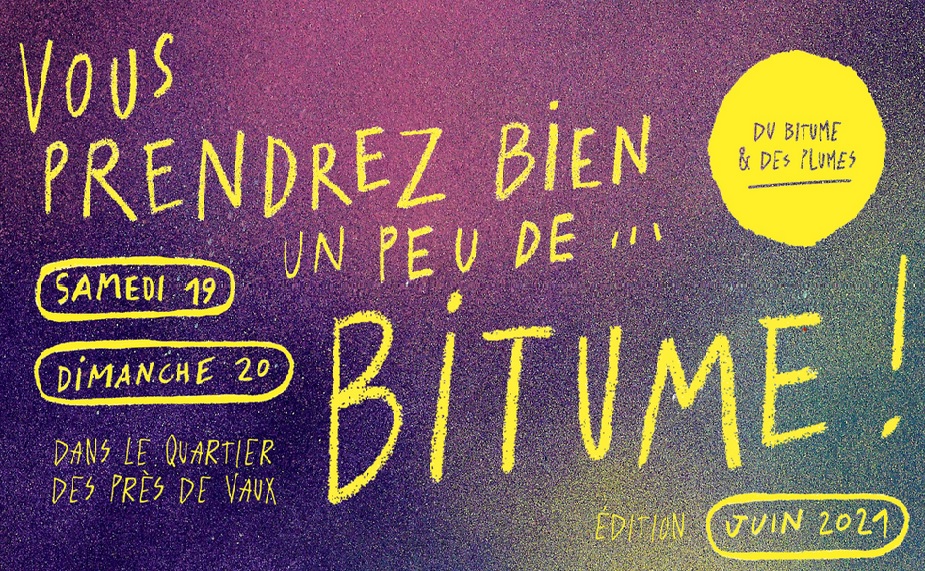 VOUS
PRENDREZ BIEN
UN PEU DE...
BITUME !
DU BITUME
& DES PLUMES
SAMEDI 19
DIMANCHE 20
DANS LE QUARTIER
DES PRÈS DE VAUX
ÉDITION JUIN 2021